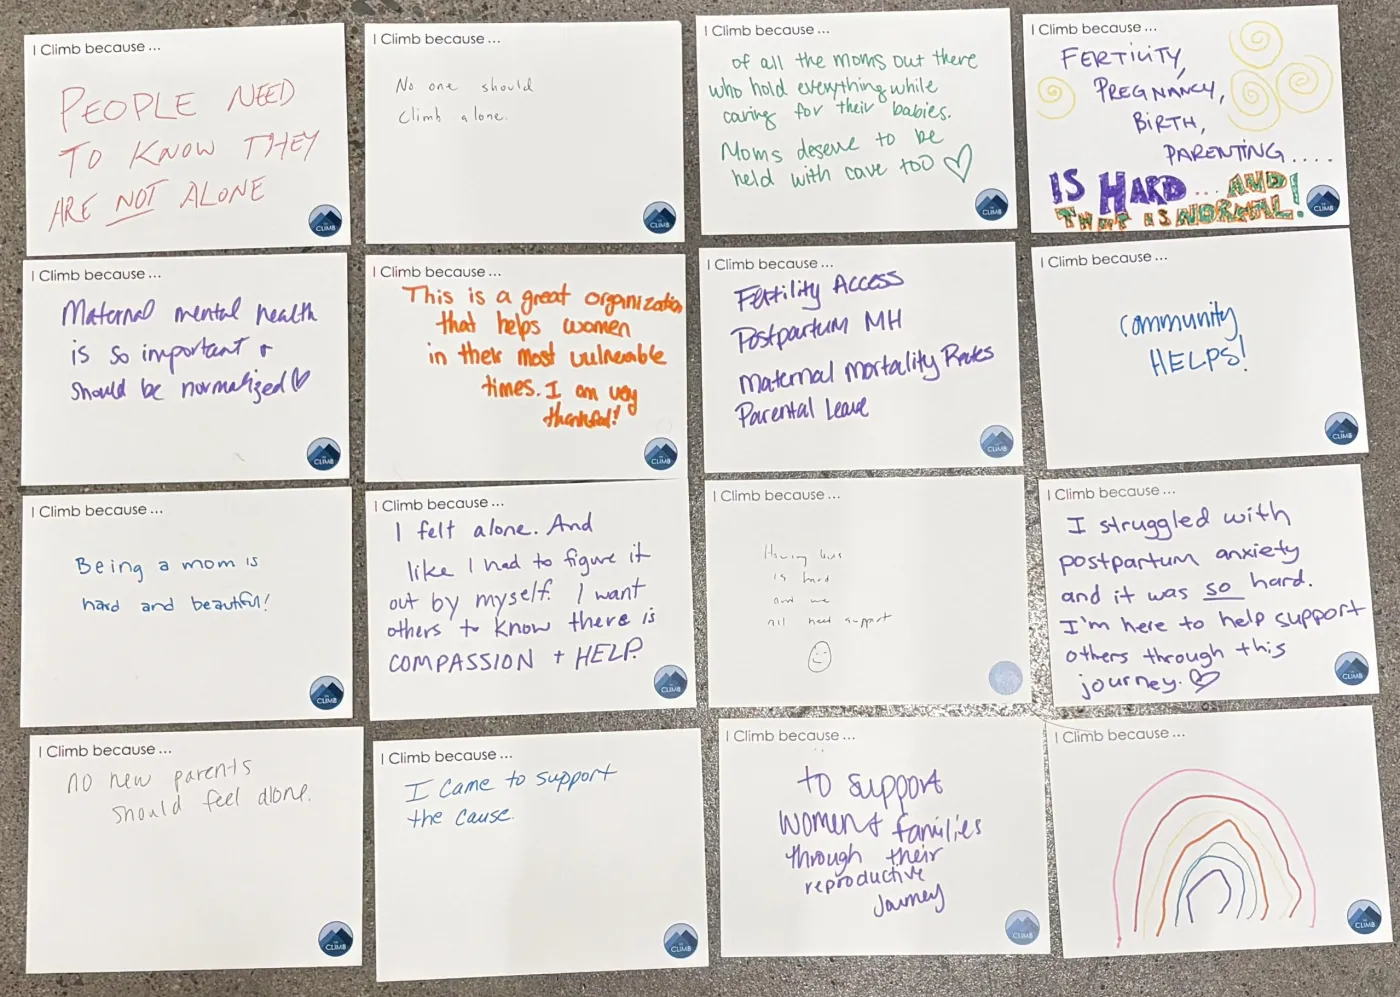 I Climb because ...
PEOPLE NEED
TO KNOW THEY
ARE NOT ALONE
CLIMB
I Climb because ...
No one should
climb alone.
CLIMB
I Climb because ...
of all the moms out there
who hold everything while
caring for their babies.
Moms deserve to be
held with care too ♡
CLIMB
I Climb because ...
FERTILITY,
PREGNANCY,
BIRTH,
PARENTING....
IS HARD... AND
THAT IS NORMAL!
CLIMB
I Climb because ...
Maternal mental health
is so important +
should be normalized ♡
CLIMB
I Climb because ...
This is a great organization
that helps women
in their most vulnerable
times. I am very
thankful!
CLIMB
I Climb because ...
Fertility Access
Postpartum MH
Maternal Mortality Rates
Parental Leave
CLIMB
I Climb because ...
community
HELPS!
CLIMB
I Climb because ...
Being a mom is
hard and beautiful!
CLIMB
I Climb because ...
I felt alone. And
like I had to figure it
out by myself. I want
others to know there is
COMPASSION + HELP.
CLIMB
I Climb because ...
Having
is hard
and we
all need support
I Climb because ...
I struggled with
postpartum anxiety
and it was so hard.
I'm here to help support
others through this
journey. ♡
CLIMB
I Climb because ...
no new parents
should feel alone.
CLIMB
I Climb because ...
I came to support
the cause.
CLIMB
I Climb because ...
to support
women + families
through their
reproductive
Journey
CLIMB
I Climb because ...
CLIMB